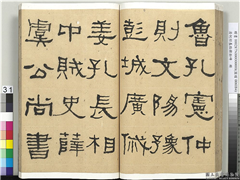 魯孔憲仲
則文陽豫
彭城廣戚
姜孔長相
中賊史薛
虞公尚書
31